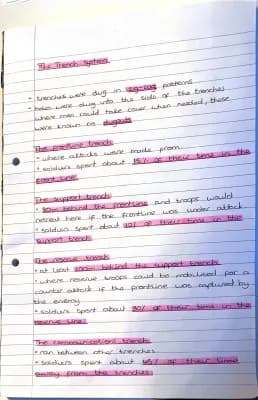 The Trench System
• trenches were dug in zig-zag patterns
• holes were dug into the side of the trenches
where men could take cover when needed, these
were known as dugouts
The frontline trench
• where attacks were made from
• soldiers spent about 15% of their time in the
front line
The support trench
• 80m behind the frontline and troops would
retreat here if the frontline was under attack
• soldiers spent about 10% of their time in the
support trench
The reserve trench
• at least 100m behind the support trench
• where reserve troops could be mobilised for a
counter attack if the frontline was captured by
the enemy
• soldiers spent about 30% of their time in the
reserve line
The communication trench
• ran between other trenches
• soldiers spent about 45% of their time
away from the trenches